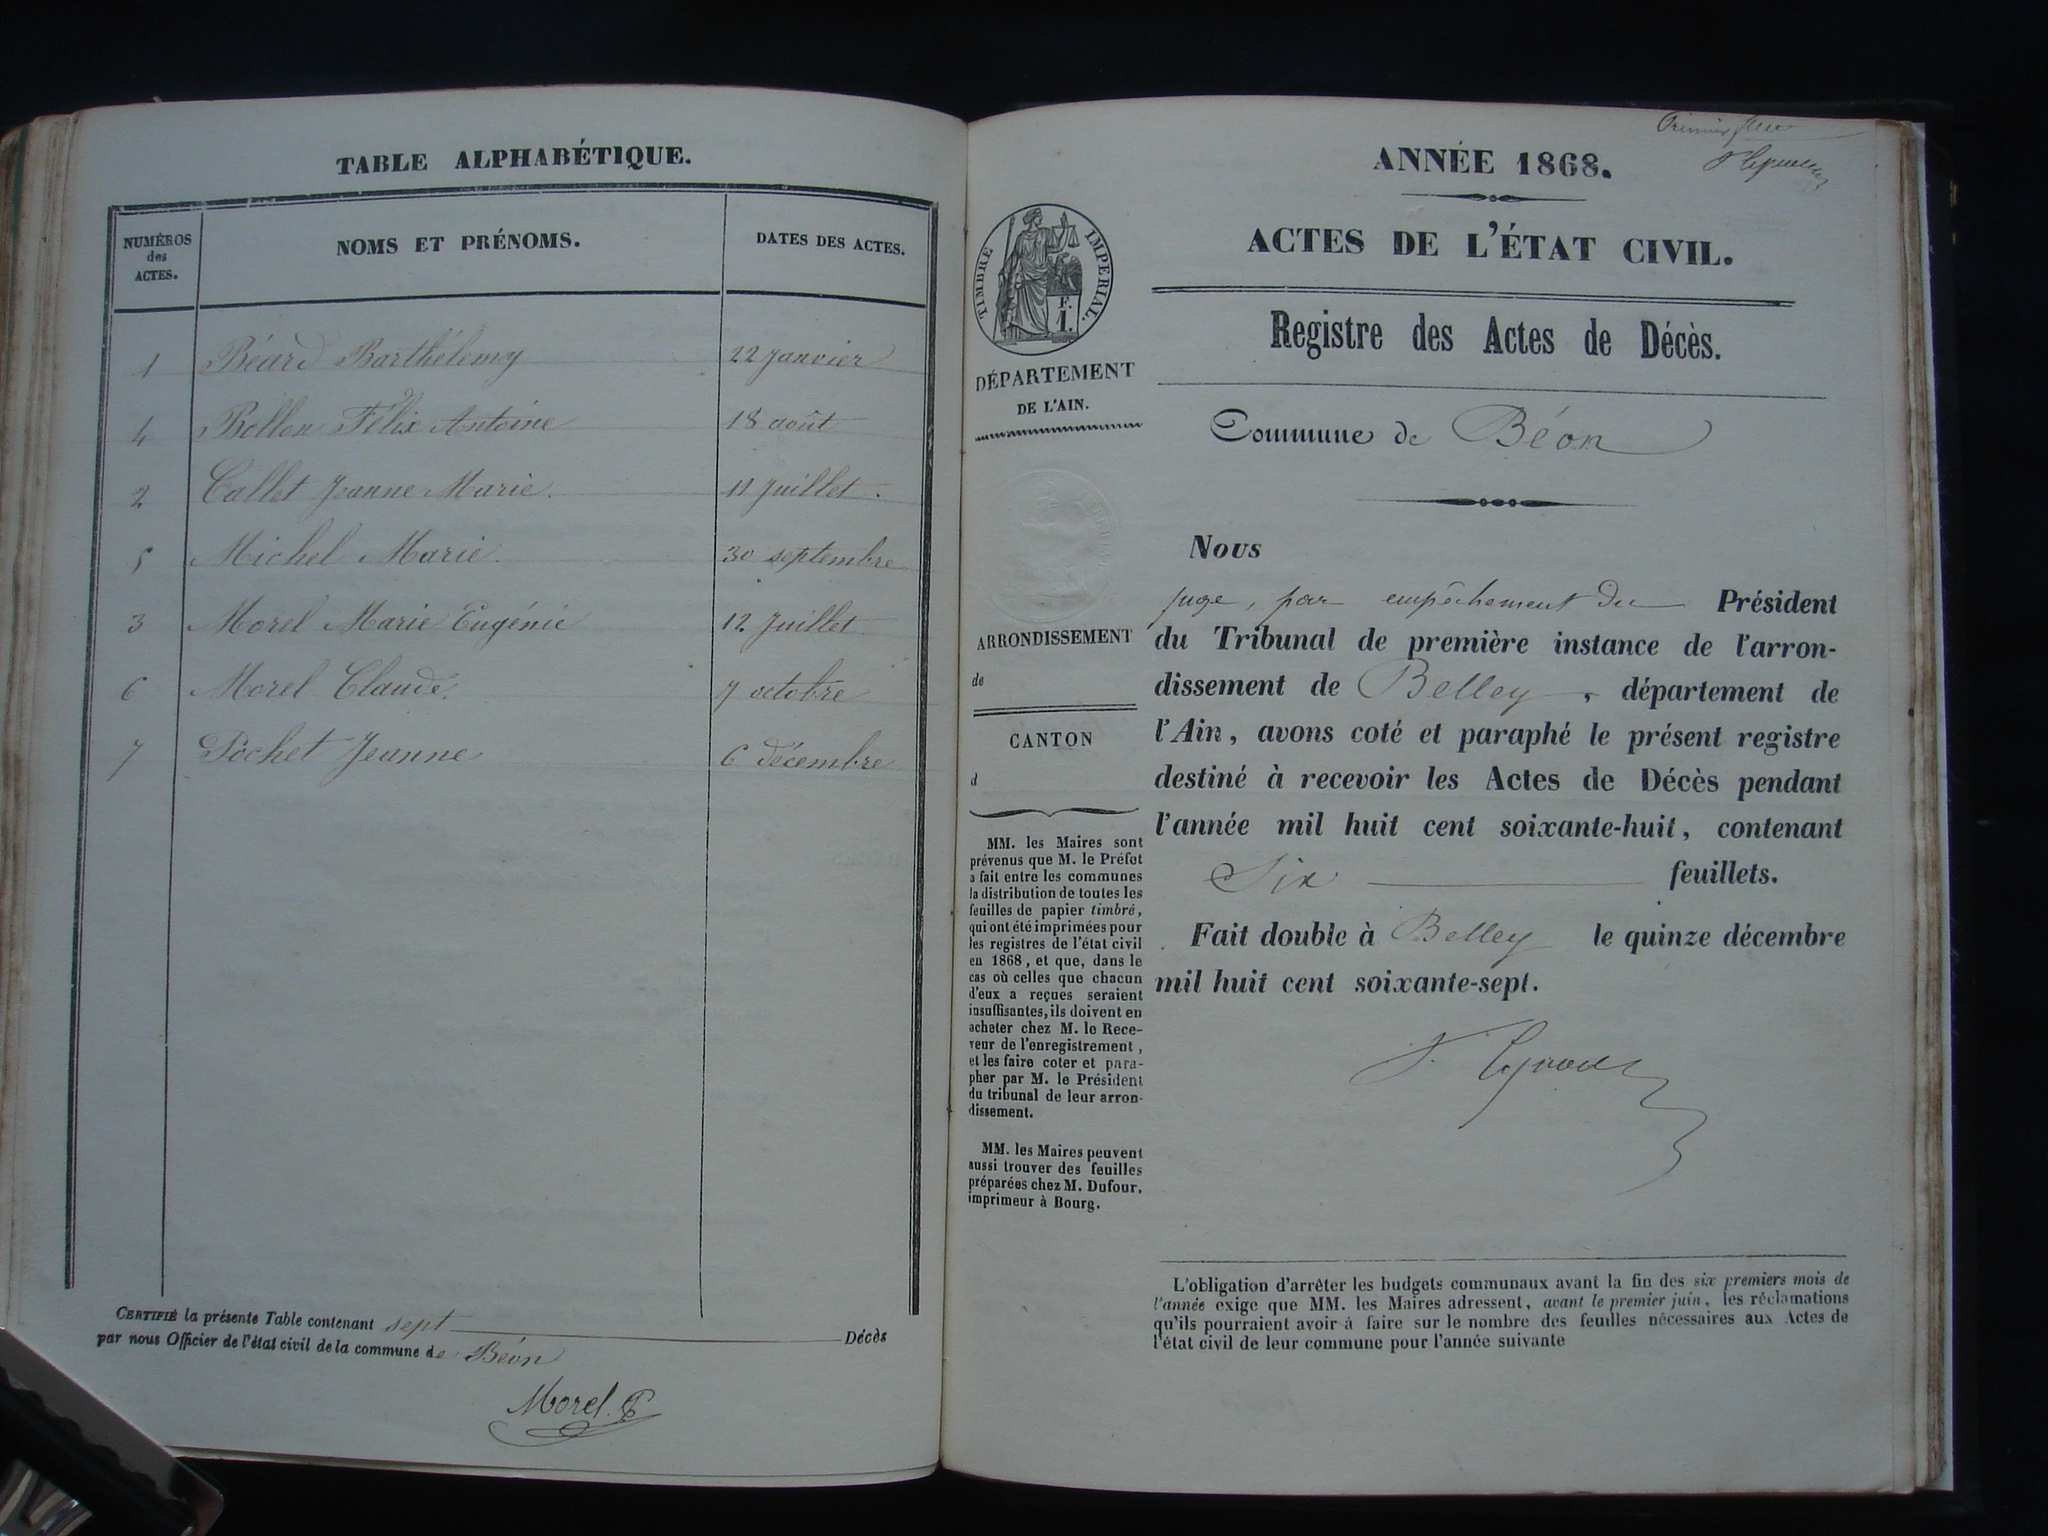 TABLE ALPHABÉTIQUE.
NUMÉROS des ACTES.
NOMS ET PRÉNOMS.
DATES DES ACTES.
1 Béard Barthélemy 22 Janvier
4 Bollon Félix Antoine 18 août
2 Callet Jeanne Marie. 11 Juillet.
5 Michel Marie 30 septembre
3 Morel Marie Eugénie 12 Juillet
6 Morel Claude. 7 octobre
7 Pochet Jeanne 6 décembre
CERTIFIÉ la présente Table contenant sept Décès
par nous Officier de l'état civil de la commune de Béon
Morel
Premier
ANNÉE 1868.
ACTES DE L'ÉTAT CIVIL.
TIMBRE IMPERIAL.
F.
1.
Registre des Actes de Décès.
DÉPARTEMENT
DE L'AIN.
Commune de Béon
ARRONDISSEMENT
de
CANTON
d
MM. les Maires sont
prévenus que M. le Préfet
a fait entre les communes
la distribution de toutes les
feuilles de papier timbré,
qui ont été imprimées pour
les registres de l'état civil
en 1868, et que, dans le
cas où celles que chacun
d'eux a reçues seraient
insuffisantes, ils doivent en
acheter chez M. le Rece-
veur de l'enregistrement,
et les faire coter et para-
pher par M. le Président
du tribunal de leur arron-
dissement.
MM. les Maires peuvent
aussi trouver des feuilles
préparées chez M. Dufour,
imprimeur à Bourg.
Nous
juge, par empêchement du Président
du Tribunal de première instance de l'arron-
dissement de Belley, département de
l'Ain, avons coté et paraphé le présent registre
destiné à recevoir les Actes de Décès pendant
l'année mil huit cent soixante-huit, contenant
Six feuillets.
Fait double à Belley le quinze décembre
mil huit cent soixante-sept.
L'obligation d'arrêter les budgets communaux avant la fin des six premiers mois de
l'année exige que MM. les Maires adressent, avant le premier juin, les réclamations
qu'ils pourraient avoir à faire sur le nombre des feuilles nécessaires aux Actes de
l'état civil de leur commune pour l'année suivante